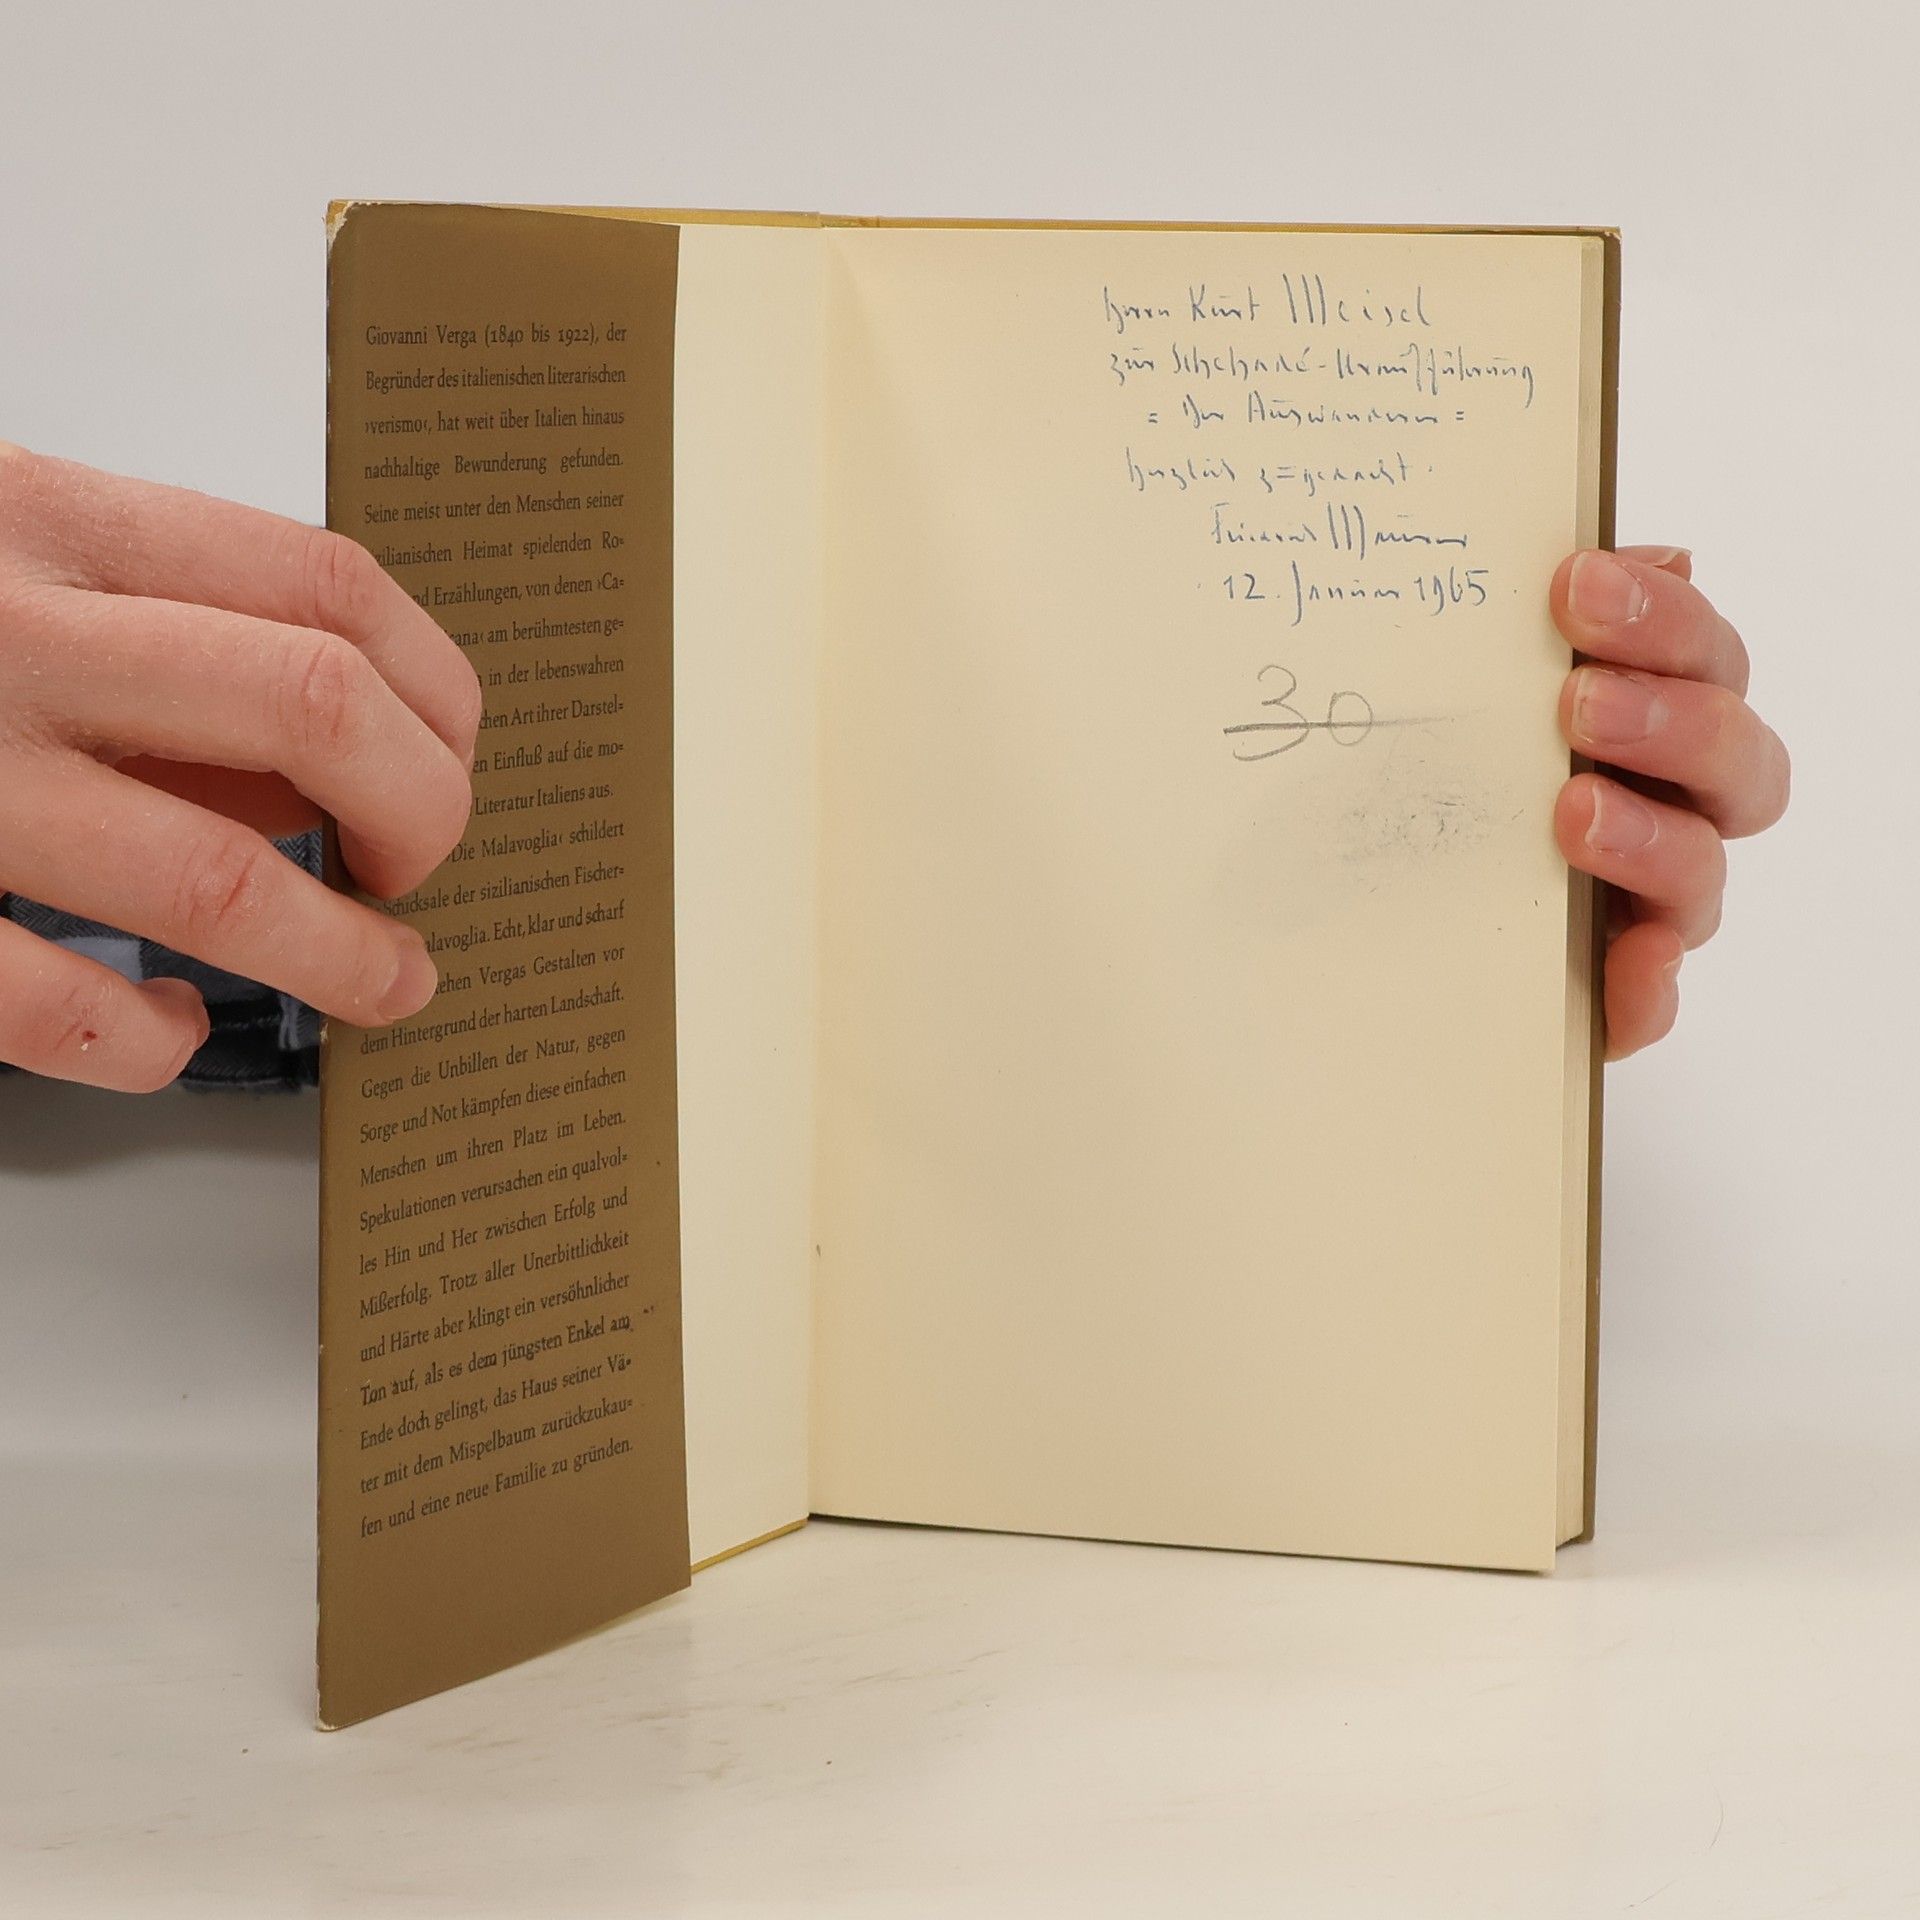 Giovanni Verga (1840 bis 1922), der
Begründer des italienischen literarischen
›verismo‹, hat weit über Italien hinaus
nachhaltige Bewunderung gefunden.
Seine meist unter den Menschen seiner
zilianischen Heimat spielenden Ro=
nd Erzählungen, von denen ›Ca=
cana‹ am berühmtesten ge=
in der lebenswahren
chen Art ihrer Darstel=
en Einfluß auf die mo=
Literatur Italiens aus.
›Die Malavoglia‹ schildert
Schicksale der sizilianischen Fischer=
alavoglia. Echt, klar und scharf
ehen Vergas Gestalten vor
dem Hintergrund der harten Landschaft.
Gegen die Unbillen der Natur, gegen
Sorge und Not kämpfen diese einfachen
Menschen um ihren Platz im Leben.
Spekulationen verursachen ein qualvol=
les Hin und Her zwischen Erfolg und
Mißerfolg. Trotz aller Unerbittlichkeit
und Härte aber klingt ein versöhnlicher
Ton auf, als es dem jüngsten Enkel am
Ende doch gelingt, das Haus seiner Vä=
ter mit dem Mispelbaum zurückzukau=
fen und eine neue Familie zu gründen.
Herrn Kurt Meisel
zur Schehadé-Uraufführung
= Der Auswanderer =
herzlich
12. Januar 1965
30